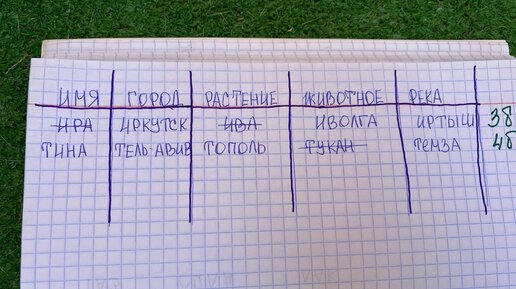 ИМЯ ГОРОД РАСТЕНИЕ ЖИВОТНОЕ РЕКА
ИРА ИРКУТСК ИВА ИВОЛГА ИРТЫШ 3б
ТИНА ТЕЛЬ-АВИВ ТОПОЛЬ ТУКАН ТЕМЗА 4б